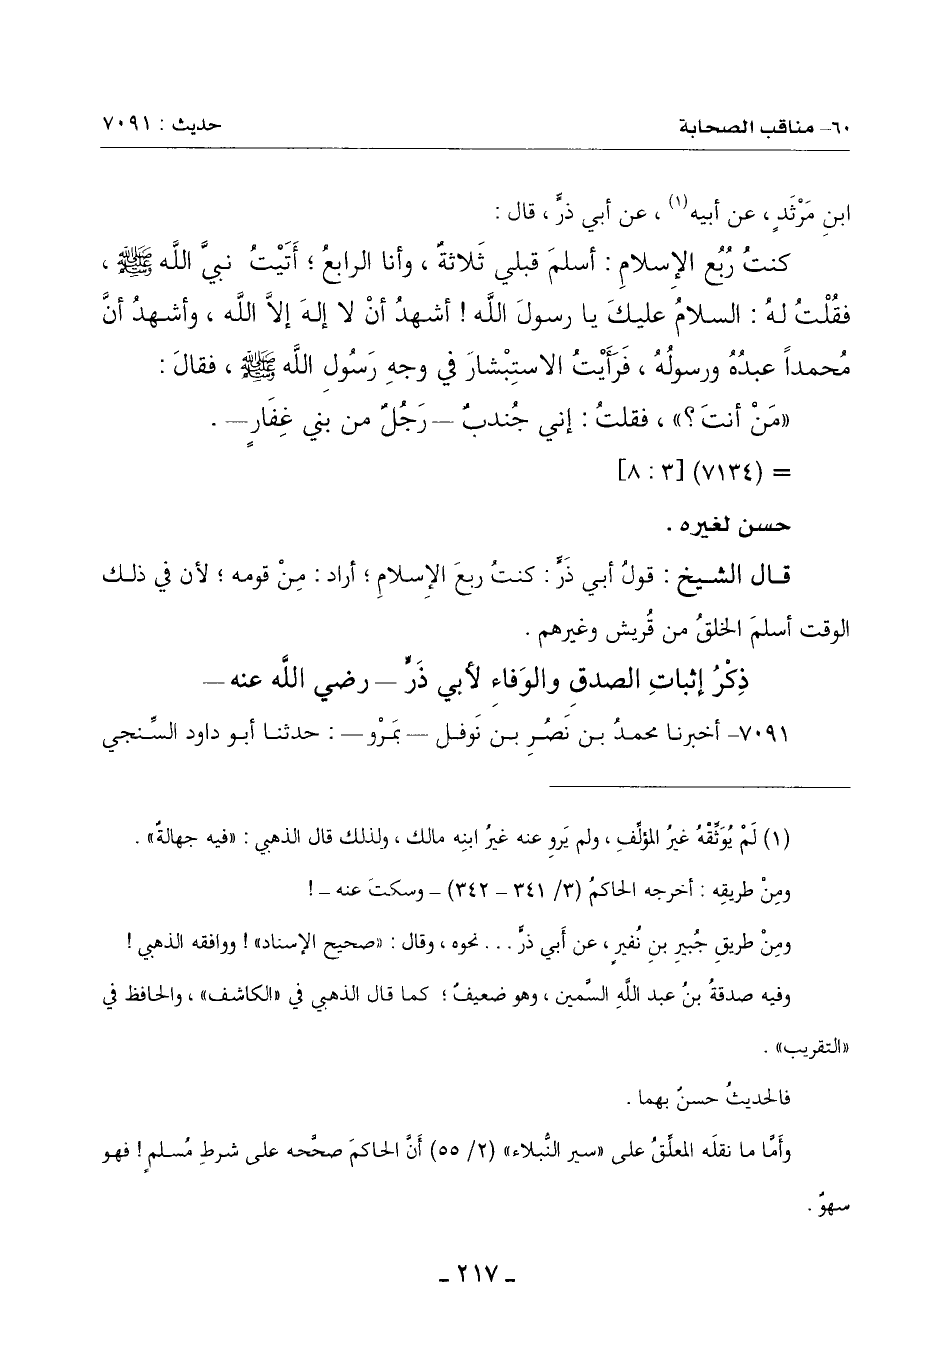 ٦٠- مناقب الصحابة
حديث : ٧٠٩١
ابنِ مَرْثَدٍ ، عن أبيه(١) ، عن أبي ذرٍّ ، قال :
كنتُ رُبُع الإسلامِ : أسلمَ قبلي ثَلاثةٌ ، وأنا الرابعُ ؛ أَتَيْتُ نبيَّ الله ﷺ ،
فقُلْتُ لهُ : السلامُ عليكَ يا رسولَ اللَّه ! أشهدُ أنْ لا إلهَ إلاَّ الله ، وأشهدُ أنَّ
مُحمداً عبدُهُ ورسولُهُ ، فَرَأَيْتُ الاستِبْشارَ في وجهِ رَسُولِ اللَّه ﷺ ، فقالَ :
«مَنْ أنتَ ؟» ، فقلتُ : إني جُندبٌ – رَجُلٌ من بني غِفَارٍ – .
= (٧١٣٤) [٣ : ٨]
حسن لغيره .
قال الشيخ : قولُ أبي ذَرٍّ : كنتُ ربعَ الإسلامِ ؛ أراد : مِنْ قومه ؛ لأن في ذلك
الوقت أسلمَ الخلقُ من قُريش وغيرهم .
ذِكْرُ إثباتِ الصدقِ والوَفاءِ لأبي ذَرٍّ – رضي اللَّه عنه –
٧٠٩١- أخبرنا محمدُ بن نَصْرِ بن نَوفل – بَمَرْو – : حدثنا أبو داود السِّنجي
(١) لَمْ يُوَثِّقْهُ غيرُ المؤلِّفِ ، ولم يَروِ عنه غيرُ ابنِه مالك ، ولذلك قال الذهبي : «فيه جهالةٌ» .
ومِنْ طريقِه : أخرجه الحاكمُ (٣/ ٣٤١ – ٣٤٢) – وسكتَ عنه – !
ومِنْ طريقِ جُبيرِ بنِ نُفيرٍ ، عن أَبي ذرٍّ . . . نحوه ، وقال : «صحيح الإسناد» ! ووافقه الذهبي !
وفيه صدقةُ بنُ عبد اللَّهِ السَّمين ، وهو ضعيفٌ ؛ كما قال الذهبي في «الكاشف» ، والحافظ في
«التقريب» .
فالحديثُ حسنٌ بهما .
وأَمَّا ما نقلَه المعلِّقُ على «سير النُّبلاء» (٢/ ٥٥) أَنَّ الحاكمَ صحَّحه على شرطِ مُسلمٍ ! فهو
سهوٌ .
ـ ٢١٧ ـ